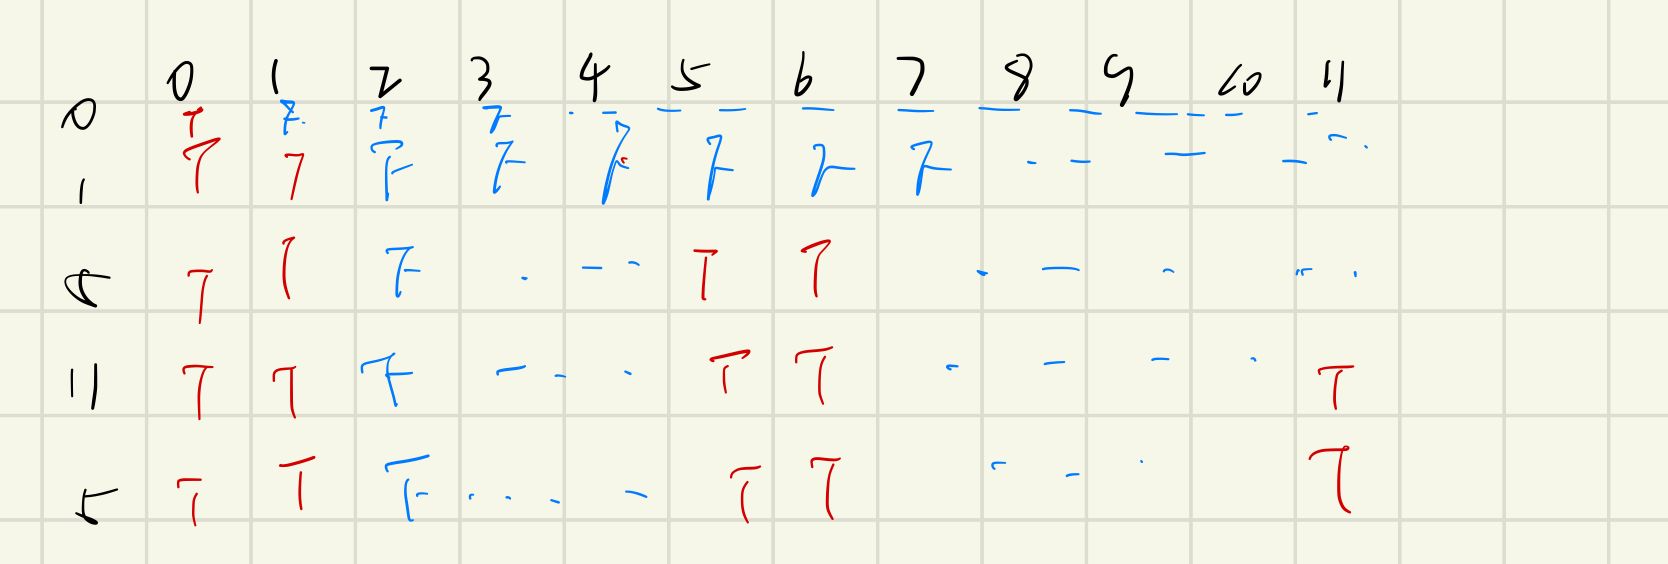 0 1 2 3 4 5 6 7 8 9 10 11
0 T F F F . - - - - - - - - - - -
1 T T F F F F F F . - - - - .
5 T T F . - - T T . - - - .
11 T T F - - . T T - - - . T
5 T T F . . . - T T - - . T